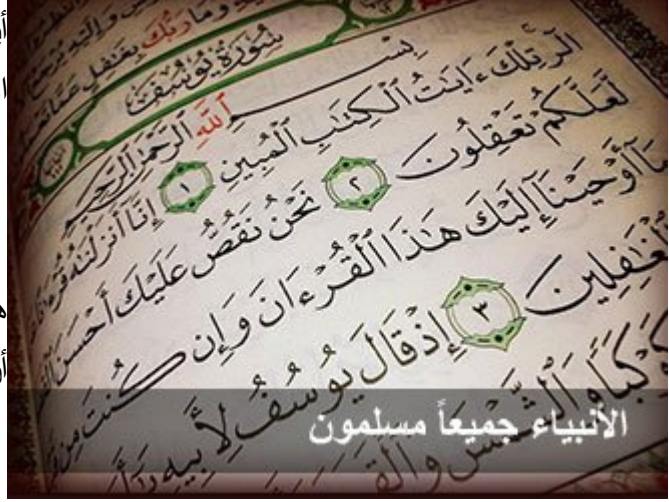 وَمَا رَبُّكَ بِغَٰفِلٍ عَمَّا
سُورَةُ يُوسُفَ
بِسْمِ ٱللَّهِ ٱلرَّحْمَٰنِ ٱلرَّحِيمِ
الٓر تِلْكَ ءَايَٰتُ ٱلْكِتَٰبِ ٱلْمُبِينِ ١ إِنَّآ أَنزَلْنَٰهُ
لَّعَلَّكُمْ تَعْقِلُونَ ٢ نَحْنُ نَقُصُّ عَلَيْكَ أَحْسَنَ
أَوْحَيْنَآ إِلَيْكَ هَٰذَا ٱلْقُرْءَانَ وَإِن كُنتَ مِن
ٱلْغَٰفِلِينَ ٣ إِذْ قَالَ يُوسُفُ لِأَبِيهِ
كَوْكَبًا وَٱلشَّمْسَ وَٱلْقَمَرَ
الأنبياء جميعاً مسلمون